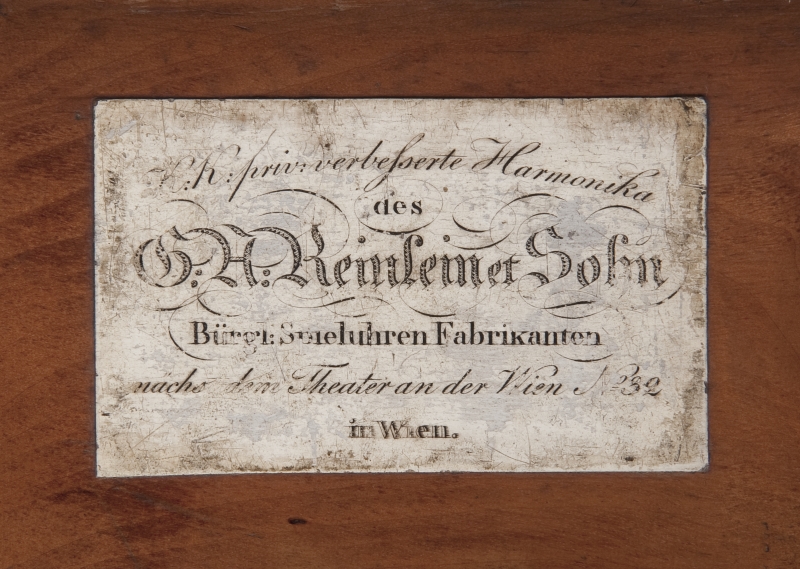 K: K: priv: verbeſserte Harmonika
des
G: A: Reinlein et Sohn
Bürgl: Spieluhren Fabrikanten
nächst dem Theater an der Wien No 32
in Wien.